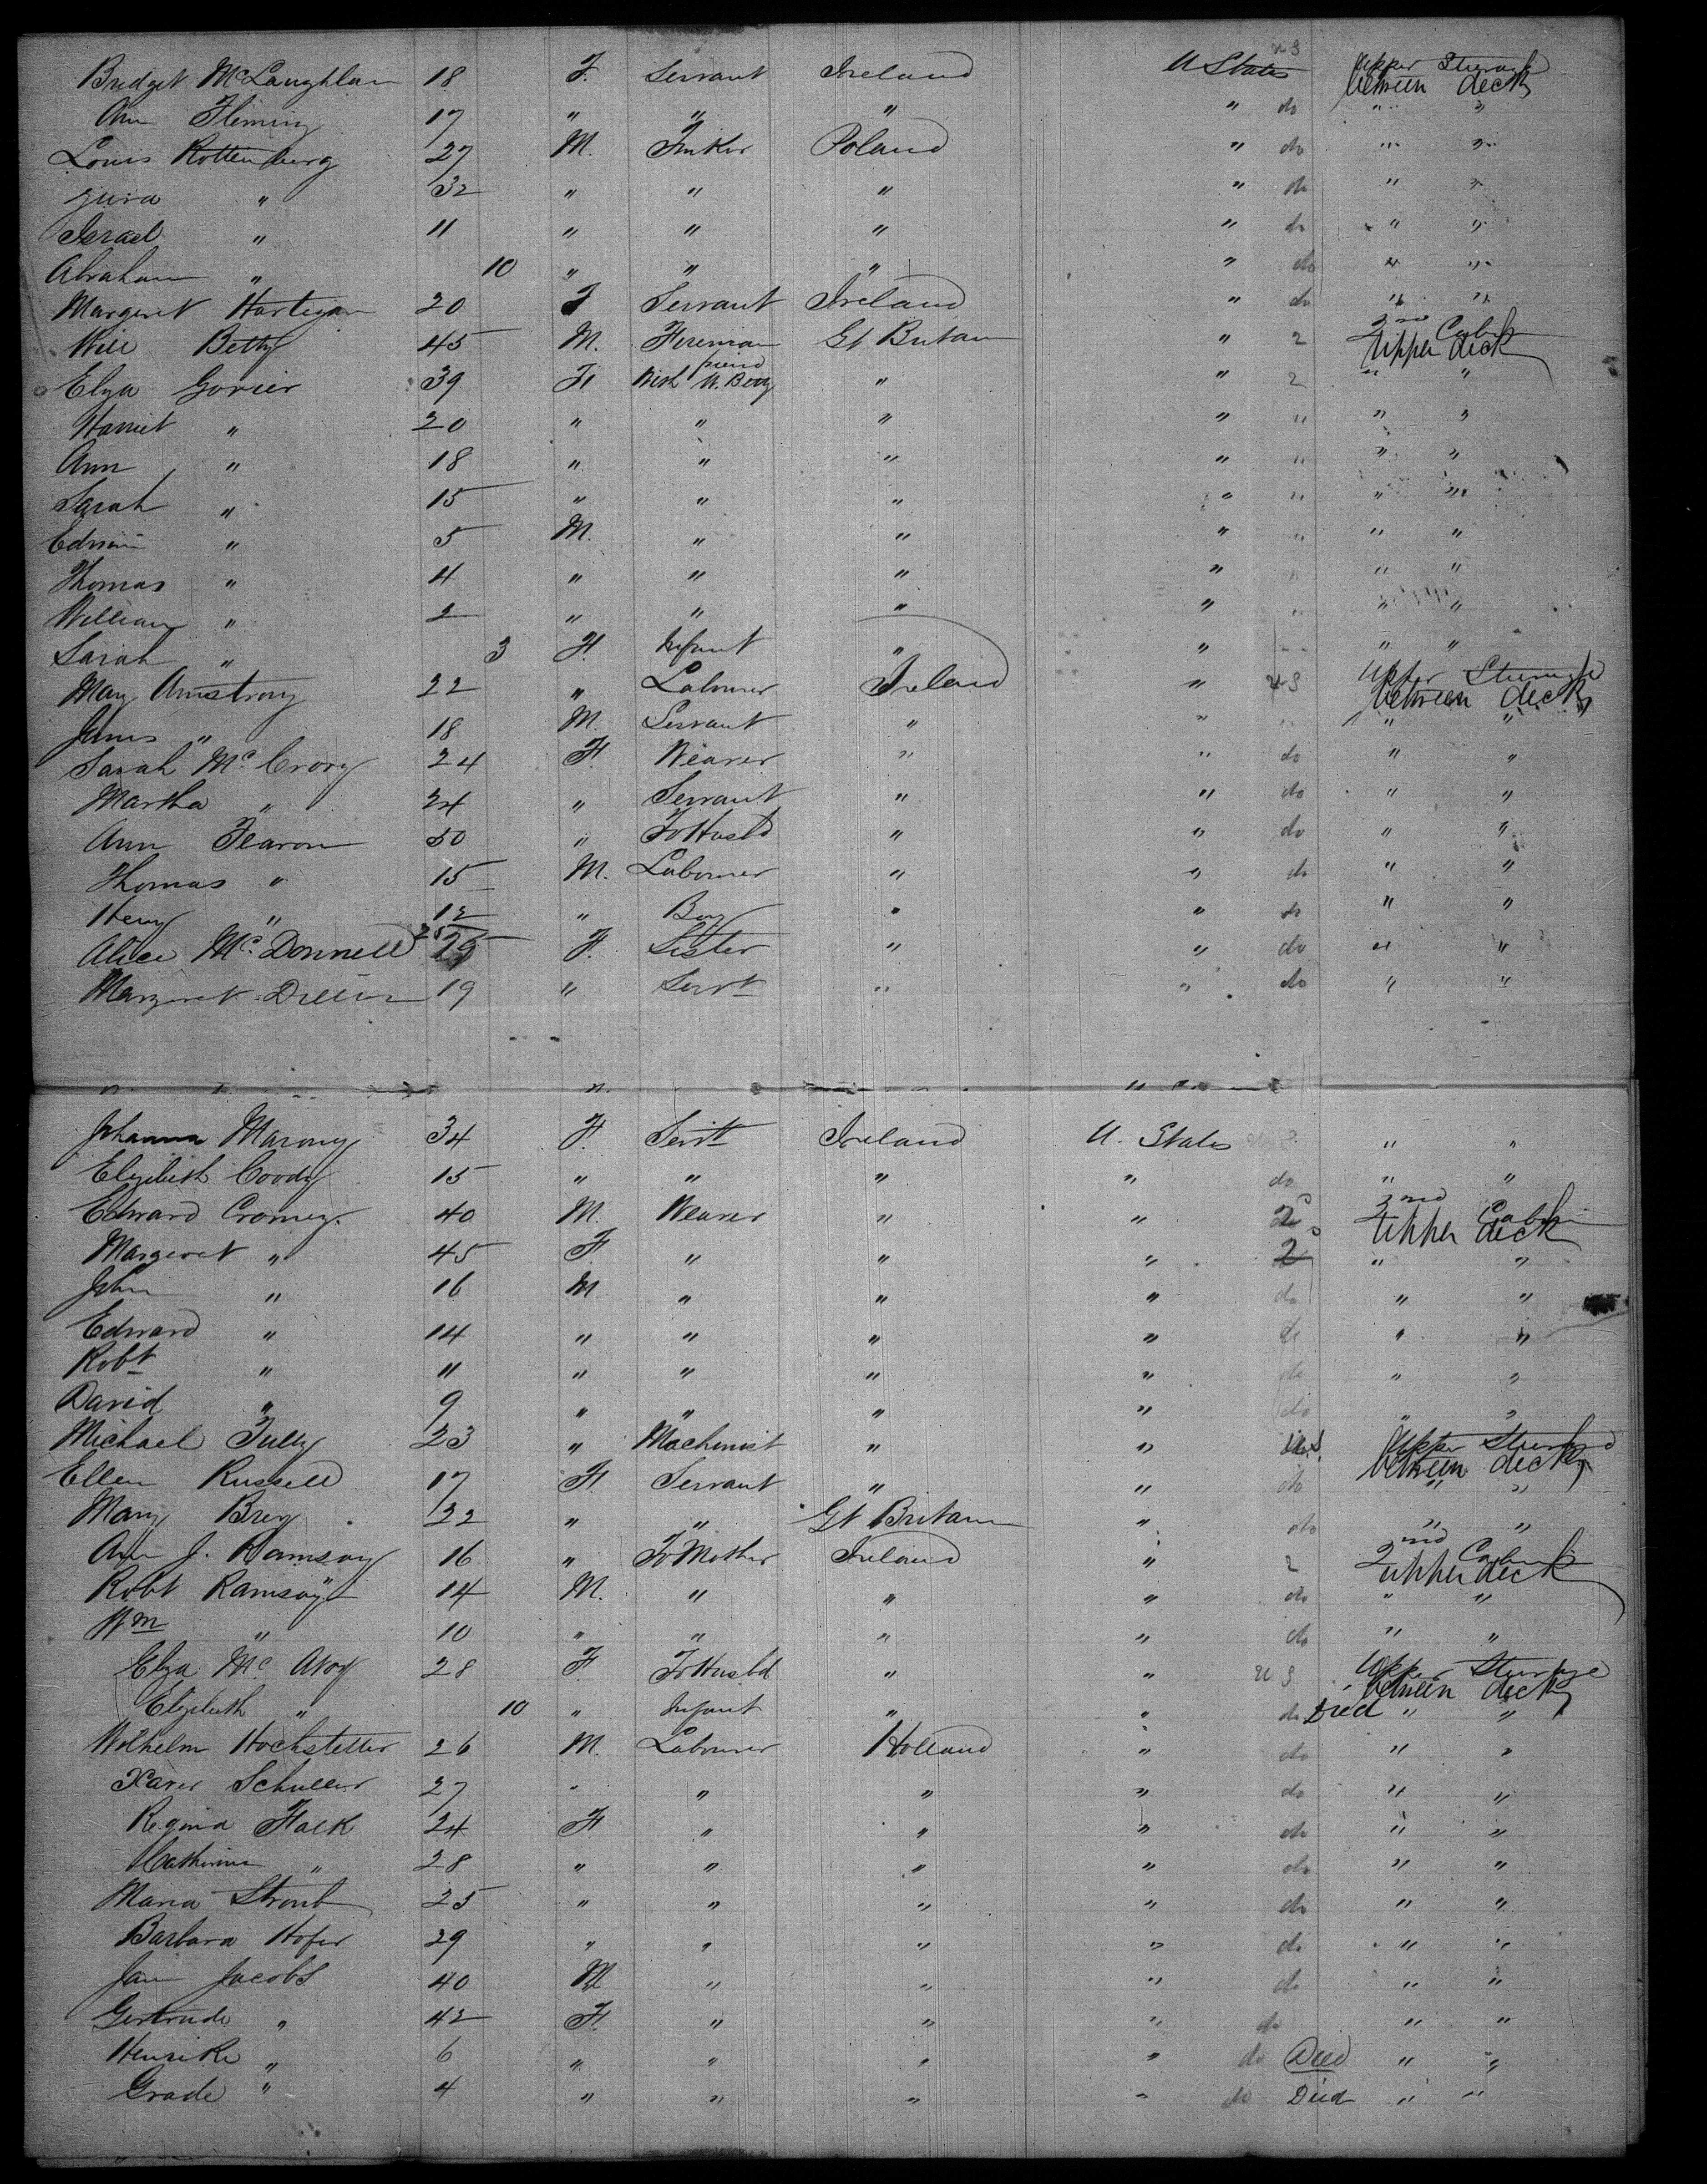 Bridget McLaughlan 18 F. Servant Ireland U States U S Upper Steerage between decks
Ann Fleming 17 " " " " do " "
Louis Rottenberg 27 M. Tinker Poland " do " "
32 " " " " do " "
Israel " 11 " " " " do " "
Abraham " 10 " " " " do " "
Margeret Hartigan 20 F Servant Ireland " do " "
Will Betty 45 M. Fireman Gt Britain " 2 2nd Cabin Upper deck
Elza Govier 39 F. With friend W. Betty " " 2 " "
Harriet " 20 " " " " " " "
Ann " 18 " " " " " " "
Sarah " 15 " " " " " " "
Edwin " 5 M. " " " " " "
Thomas " 4 " " " " " " "
William " 2 " " " " " " "
Sarah " 3 F. Infant " " " " "
Mary Armstrong 22 " Labourer Ireland " U S Upper Steerage between decks
James " 18 M. Servant " " " " "
Sarah Mc Crory 24 F. Weaver " " do " "
Martha " 24 " Servant " " do " "
Ann Fearon 50 " To Husbd " " do " "
Thomas " 15 M. Labourer " " do " "
Henry " 12 " Boy " " do " "
Alice Mc Donnell 25 F. Sister " " do " "
Margaret Dillon 19 " Servt " " do " "
Johanna Marony 34 F. Servt Ireland U. States U S " "
Elizebeth Coody 15 " " " " do " "
Edward Cromey. 40 M. Weaver " " 2 2nd Cabin Upper deck
Margeret " 45 F " " " 2 " "
John " 16 M " " " do " "
Edward " 14 " " " " do " "
Robt " 11 " " " " do " "
David " 9 " " " " do " "
Michael Tully 23 " Machinist " " U S Upper Steerage between decks
Ellen Russell 17 F. Servant " " do " "
Mary Brey 22 " " Gt Britain " do " "
Ann J. Ramsay 16 " To Mother Ireland " 2 2nd Cabin upper deck
Robt Ramsay 14 M. " " " do " "
Wm " 10 " " " " do " "
Elza Mc Avoy 28 F. To Husbd " " U S Upper Steerage between decks
Elizebeth " 10 " Infant " " do Died " "
Wilhelm Hochstetter 26 M. Labourer Holland " do " "
Xaver Schuller 27 " " " " do " "
Regina Falk 24 F. " " " do " "
Catherina " 28 " " " " do " "
Maria Stroub 25 " " " " do " "
Barbara Hofer 29 " " " " do " "
Jan Jacobs 40 M " " " do " "
Gertrude " 42 F. " " " do " "
Henrike " 6 " " " " do Died " "
Grade " 4 " " " " do Died " "